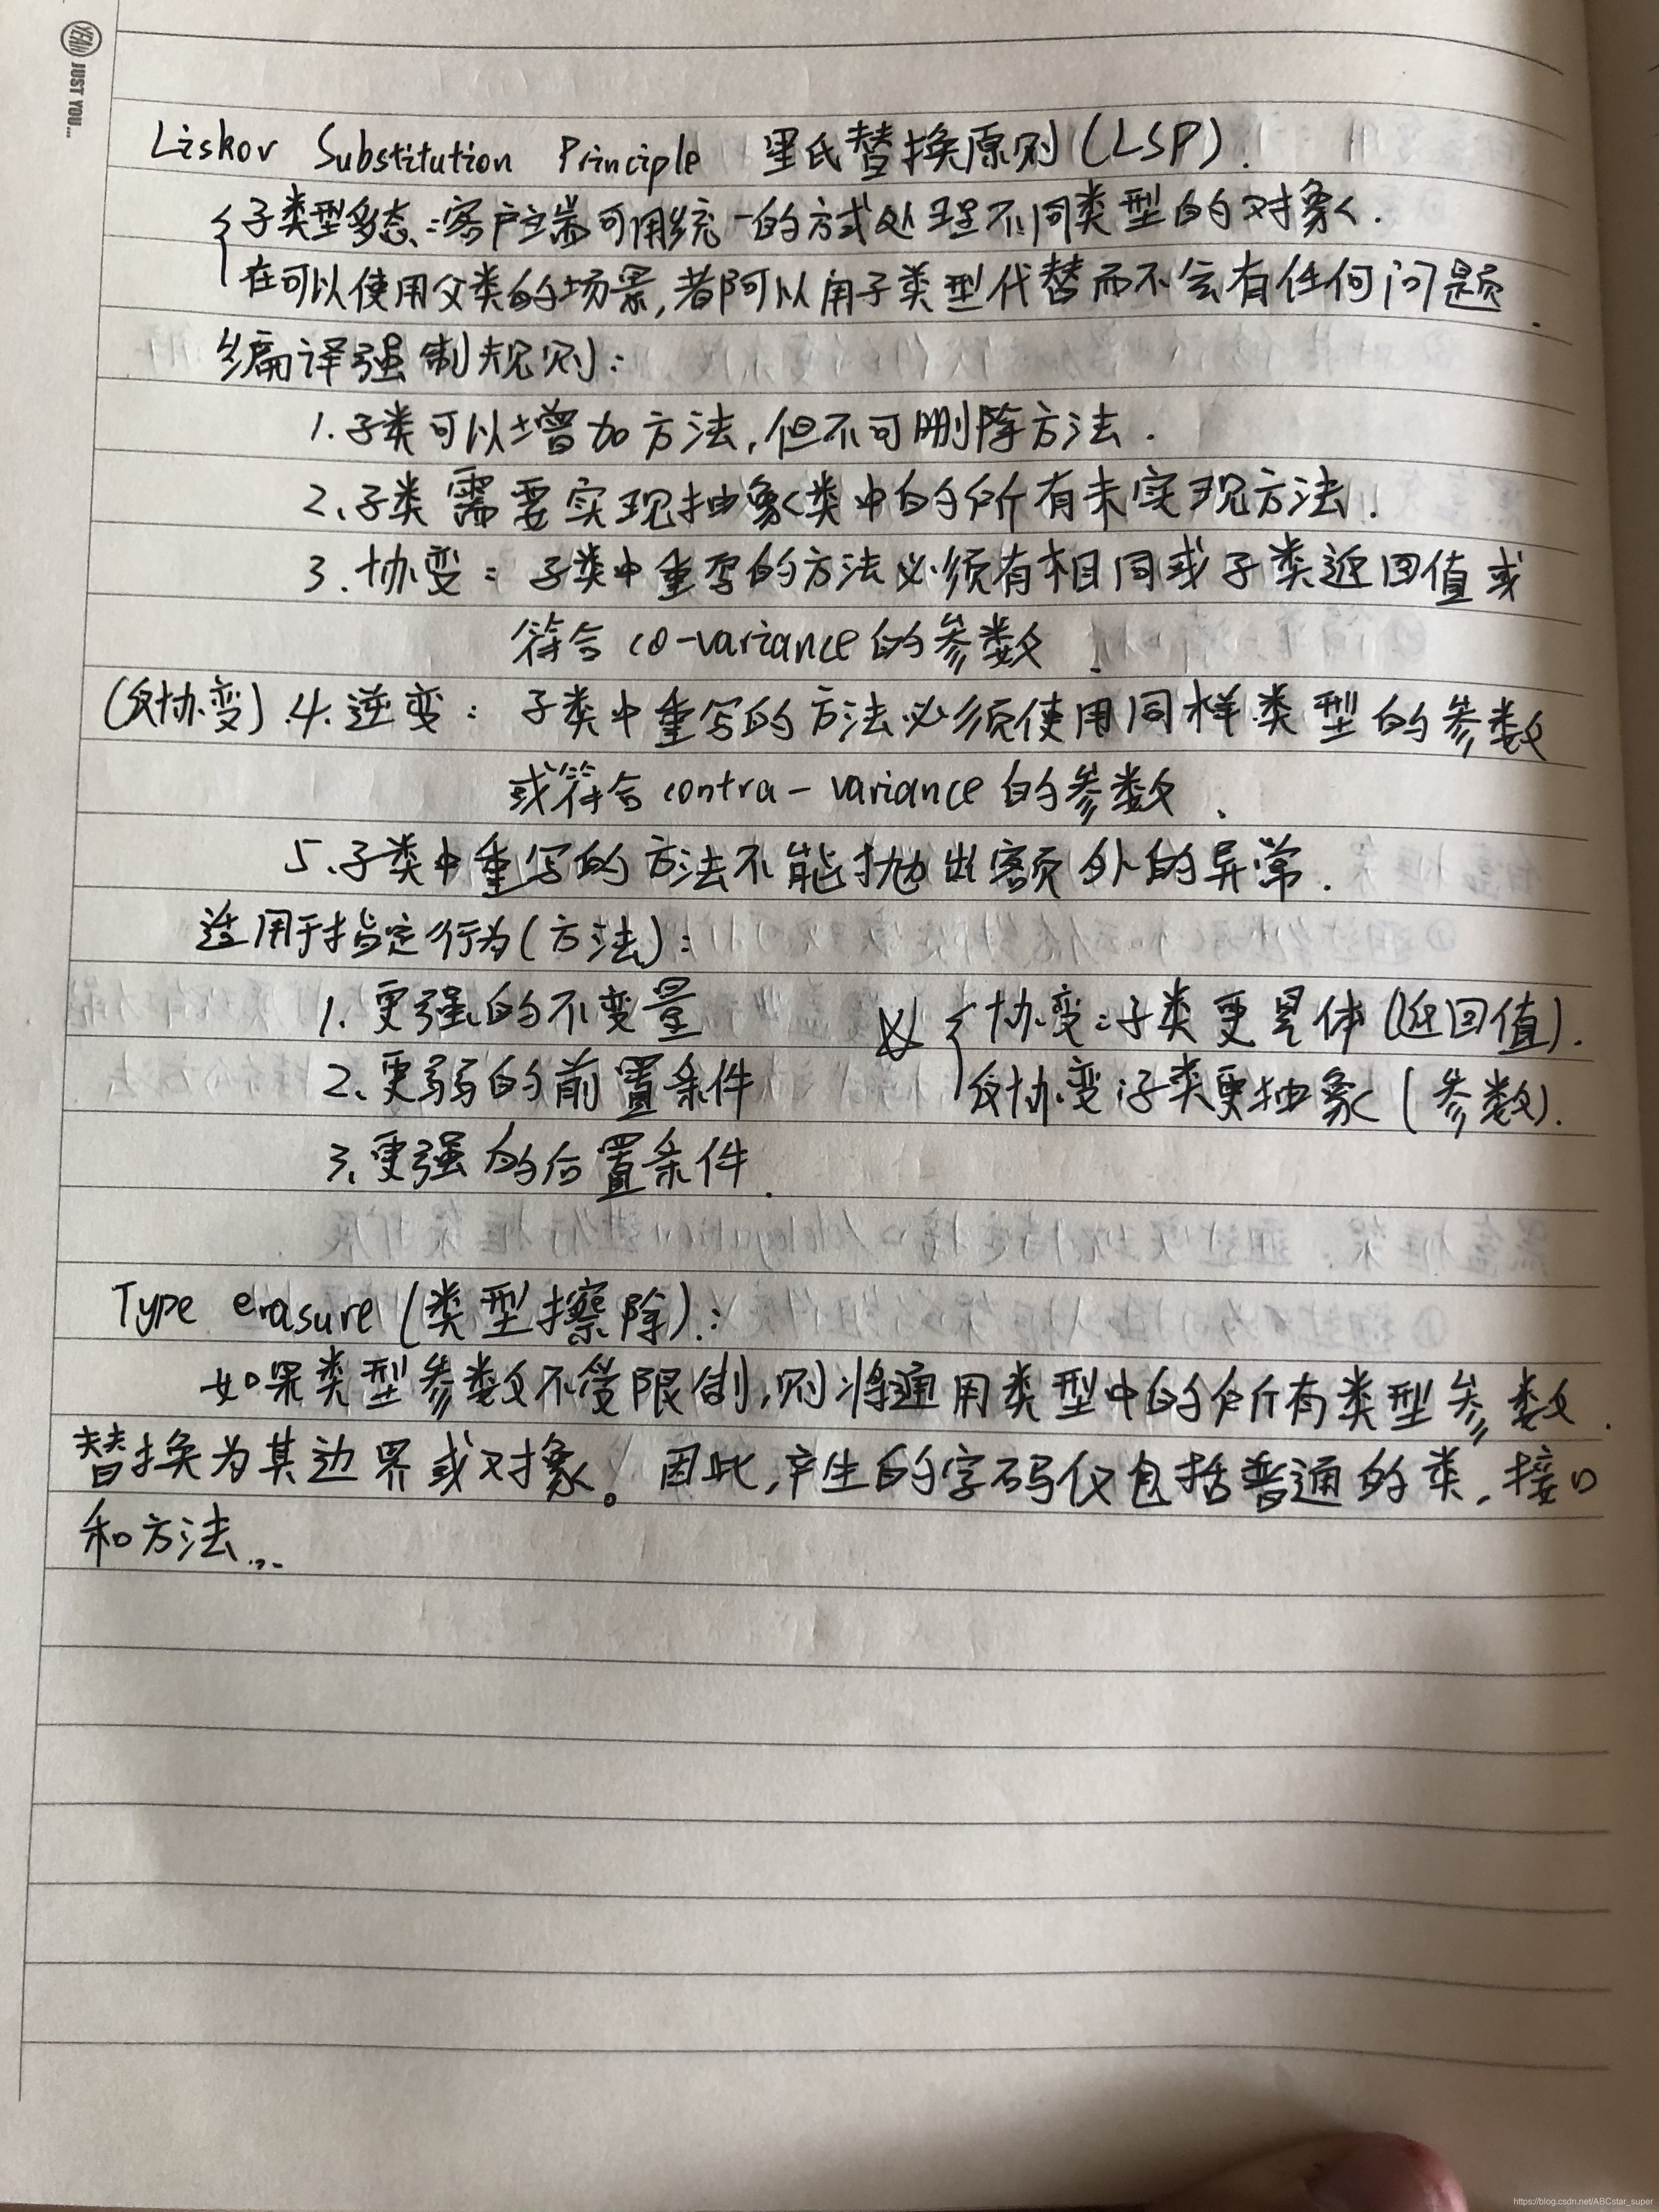 JUST YOU...
Liskov Substitution Principle 里氏替换原则(LSP).
{子类型多态:客户端可用统一的方式处理不同类型的对象.
在可以使用父类的场景,都可以用子类型代替而不会有任何问题.
编译强制规则:
1.子类可以增加方法,但不可删除方法.
2.子类需要实现抽象类中的所有未实现方法.
3.协变:子类中重写的方法必须有相同或子类返回值或
符合co-variance的参数.
(反协变).4.逆变:子类中重写的方法必须使用同样类型的参数
或符合contra-variance的参数.
5.子类中重写的方法不能抛出额外的异常.
适用于指定行为(方法):
1.更强的不变量
2.更弱的前置条件
3.更强的后置条件.
{协变:子类更具体(返回值).
反协变:子类更抽象(参数).
Type erasure(类型擦除).:
如果类型参数不受限制,则将通用类型中的所有类型参数.
替换为其边界或对象。因此,产生的字码仅包括普通的类,接口
和方法...
https://blog.csdn.net/ABCstar_super